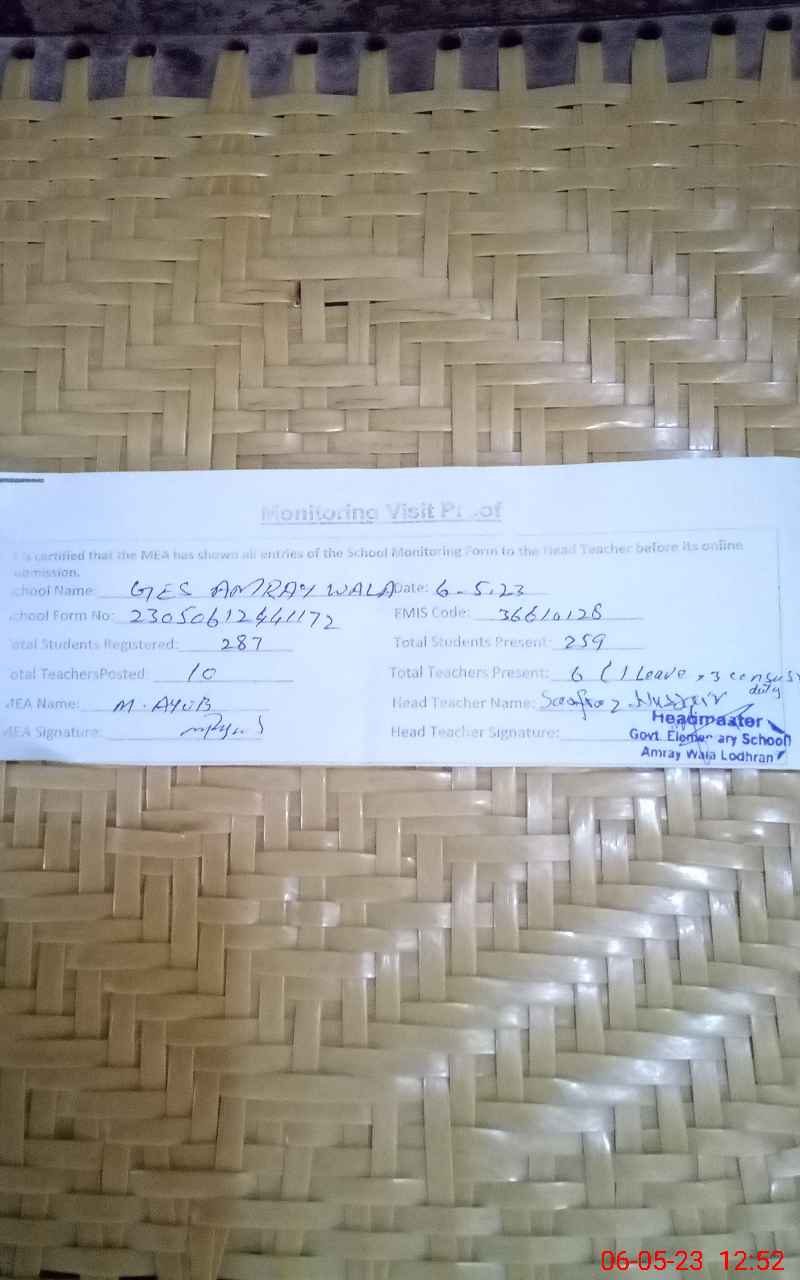 Monitoring Visit Proof
is certified that the MEA has shown all entries of the School Monitoring Form to the Head Teacher before its online
School Name: GES AMRAY WALA Date: 6-5.23
School Form No: EMIS Code: 36610128
Total Students Registered: 287 Total Students Present: 259
Total TeachersPosted: 10 Total Teachers Present: 6 (1 Leave, 3 census duty
MEA Name: M. AYUB Head Teacher Name:
MEA Signature: Head Teacher Signature:
Headmaster
Govt. Elementary School
Amray Wala Lodhran
06-05-23 12:52